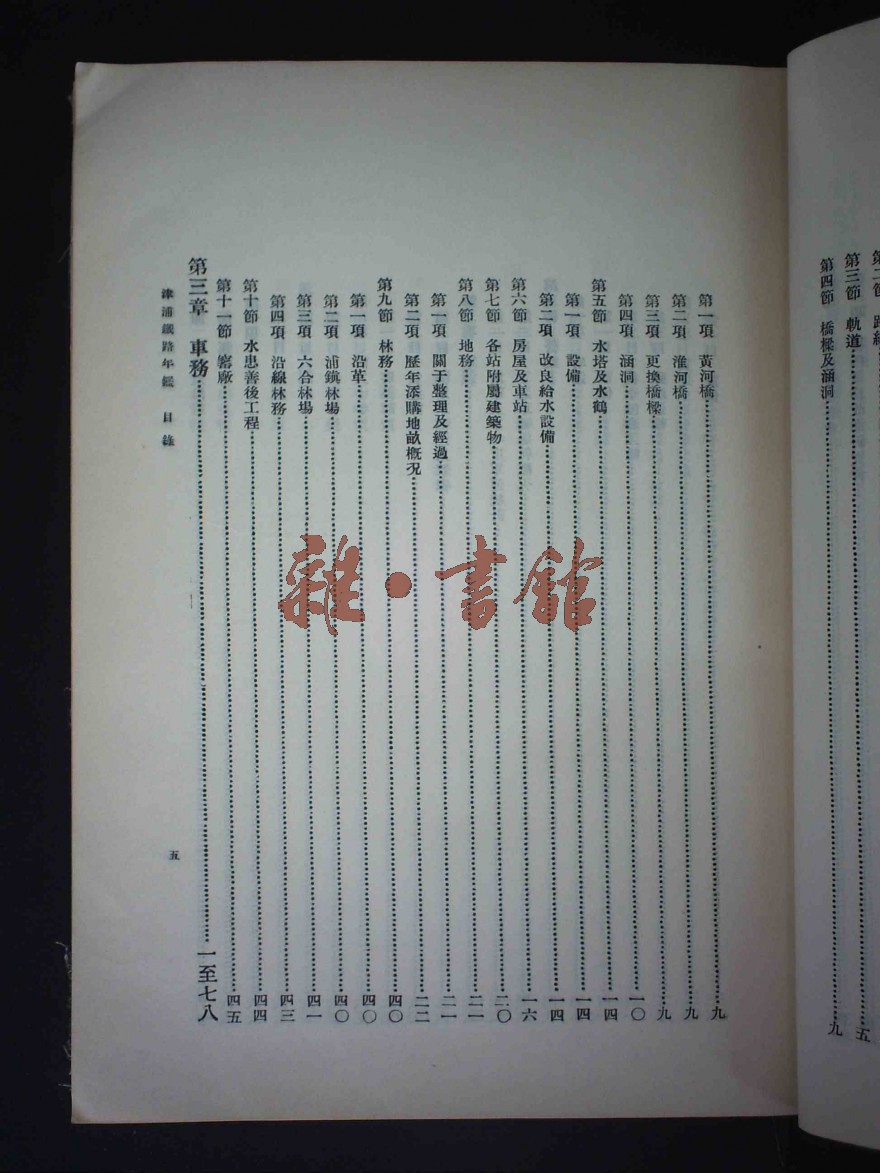 第三節　軌道……五
第四節　橋樑及涵洞……九
第一項　黃河橋……九
第二項　淮河橋……九
第三項　更換橋樑……九
第四項　涵洞……一〇
第五節　水塔及水鶴……一四
第一項　設備……一四
第二項　改良給水設備……一四
第六節　房屋及車站……一六
第七節　各站附屬建築物……二〇
第八節　地務……二一
第一項　關于整理及經過……二一
第二項　歷年添購地畝概況……二二
第九節　林務……四〇
第一項　沿革……四〇
第二項　浦鎮林場……四〇
第三項　六合林場……四一
第四項　沿線林務……四三
第十節　水患善後工程……四四
第十一節　窰廠……四五
第三章　車務……一至七八
津浦鐵路年鑑　目錄
五
雜·書館